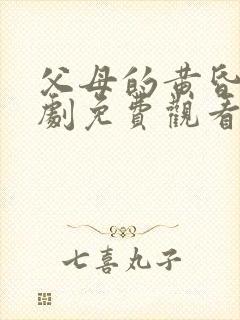 父母的黄昏
劇免費觀看
七喜丸子